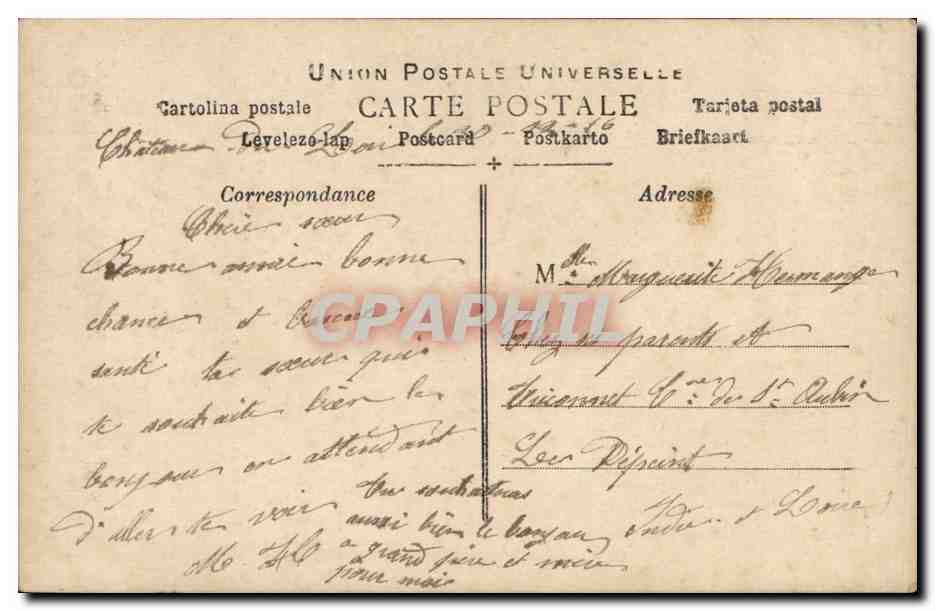 UNION POSTALE UNIVERSELLE
Cartolina postale CARTE POSTALE Tarjeta postal
Levelezo-lap Postcard Postkarto Briefkaart
Chateau Du Loir
Correspondance
Chère sœur
Bonne année bonne
chance et bonne
santé ta sœur qui
te souhaite bien le
bonjour en attendant
d'aller te voir
M. H
tu souhaiteras
aussi bien le bonjour
a grand père et mère
pour moi
Adresse
Mlle Marguerite Hermange
Chez ses parents et
Cne de St Aubin
Le Dépeint
Indre et Loire
CPAPHIL